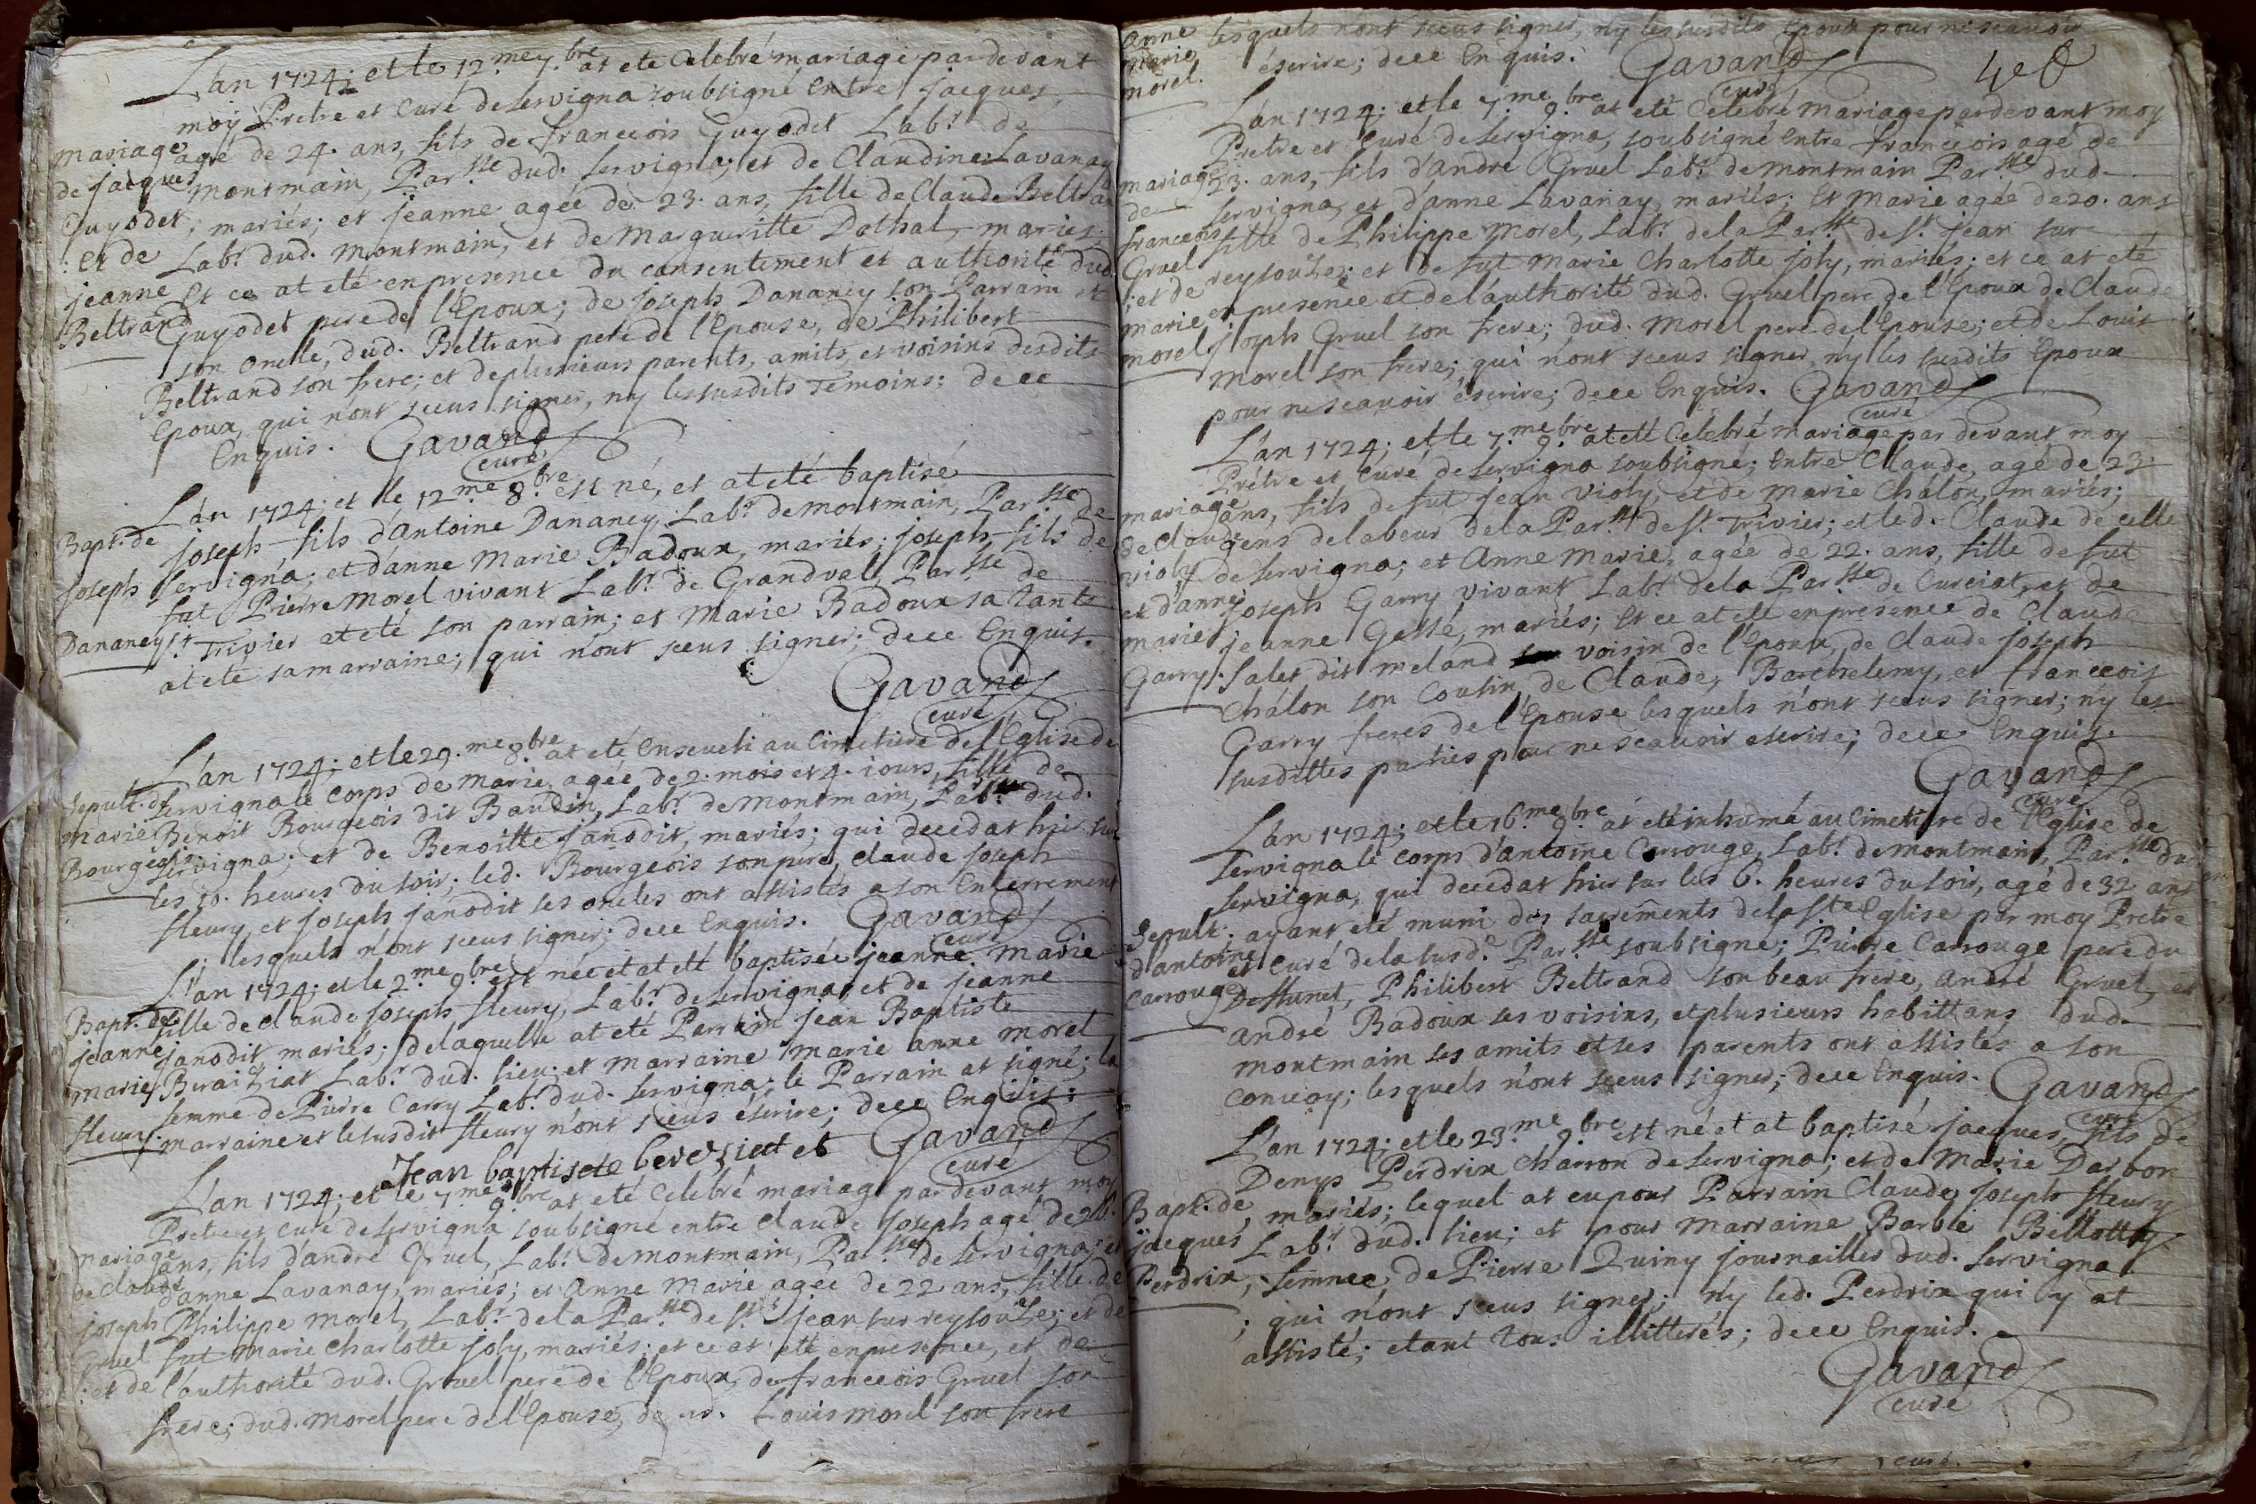 L'an 1724; et le 12.me 7.bre at eté Celebré mariage par devant
moy Pretre et Curé de servigna soubsigné Entre jacques
agé de 24. ans, fils de francois Guyodet Lab.r de
montmain, Par.sse dud. servigna; et de Claudine Lavanay
mariés; et jeanne agée de 23. ans, fille de Claude Beltrand
Lab.r dud. montmain, et de Margueritte Dothal, mariés.
Et ce at eté en presence du consentement et authorité dud.
Guyodet pere de l'Epoux; de joseph Dananey son Parrain et
son oncle, dud. Beltrand pere de l'Epouse, de Philibert
Beltrand son frere; et de plusieurs parents, amits, et voisins desdits
Epoux, qui n'ont sceus signer, ny les susdits Temoins; de ce
Enquis. Gavand
curé
mariage
de jacques
Guyodet;
: et de
jeanne
Beltrand
L'an 1724; et le 12.me 8.bre est né, et at eté baptise
joseph fils d'Antoine Dananey, Lab.r de montmain, Par.sse de
servigna; et d'anne Marie Badoux, mariés; joseph fils de
fut Pierre Morel vivant Lab.r de Grandval, Par.sse de
s.t Trivier at eté son parrain; et Marie Badoux sa Tante
at eté sa marraine; qui n'ont sceus signer; de ce Enquis.
Gavand
curé
Bapt. de
joseph
Dananey
L'an 1724; et le 29.me 8.bre at eté Enseveli au Cimetiere de l'Eglise de
servigna le corps de Marie agée de 2. mois et 4. iours, fille de
Benoit Bourgeois dit Baudin, Lab.r de montmain, Par.sse dud.
servigna; et de Benoitte janodit, mariés; qui decedat hier sur
les 10. heures du soir; led. Bourgeois son pere, Claude joseph
fleury, et joseph janodit ses oncles ont assistés a son Enterrement
lesquels n'ont sceus signer; de ce Enquis. Gavand
curé
sepult. de
Marie
Bourgeois
L'an 1724; et le 2.me 9.bre est née et at eté baptisée jeanne Marie
fille de Claude joseph fleury, Lab.r de servigna, et de jeanne
janodit mariés; de laquelle at eté Parrain jean Baptiste
Beraiziat Lab.r dud. lieu; et marraine Marie anne Morel
femme de Pierre Carry Lab.r dud. servigna; le Parrain at signé; la
marraine et le susdit fleury n'ont sceus éscrire; de ce Enquis:
Jean baptiste bereziat Gavand
curé
Bapt. de
jeanne
Marie
fleury.
L'an 1724; et le 7.me 9.bre at eté Celebré mariage par devant moy
Pretre et curé de servigna soubsigné entre Claude joseph agé de 26.
ans, fils d'andré Gruel, Lab.r de montmain, Par.sse de servigna; et
d'anne Lavanay, mariés; et Anne Marie agée de 22 ans, fille de
Philippe Morel, Lab.r de la Par.sse de s.t jean sur reysouze; et de
fut Marie Charlotte joly, mariés; et ce at eté en presence, et de
l'authorité dud. Gruel pere de l'Epoux, de francois Gruel son
frere; dud. Morel pere de l'Epouse, de Louis Morel son frere
mariage
de Claude
joseph
Gruel
: et de
anne
Marie
Morel.
lesquels n'ont sceus signer, ny les susdits Epoux pour ne scavoir
éscrire; de ce Enquis. Gavand
curé
L'an 1724; et le 7.me 9.bre at eté Celebré Mariage par devant moy
Pretre et Curé de servigna, soubsigné Entre francois agé de
23. ans, fils d'Andre Gruel Lab.r de montmain Par.sse dud.
servigna, et d'anne Lavanay, mariés: Et Marie agée de 20. ans
fille de Philippe Morel, Lab.r de la Par.sse de s.t jean sur
reysouze; et de fut Marie Charlotte joly, mariés; et ce at eté
en presence et de l'authorité dud. Gruel pere de l'Epoux de Claude
joseph Gruel son frere; dud. Morel pere de l'Epouse; et de Louis
Morel son frere; qui n'ont sceus signer ny les susdits Epoux
pour ne scavoir éscrire; de ce Enquis. Gavand
curé
mariage
de
francois
Gruel
; et de
marie
morel
L'an 1724; et le 7.me 9.bre at eté Celebré mariage par devant moy
Prétre et Curé de servigna soubsigné; Entre Claude, agé de 23
ans, fils de fut jean violy, et de Marie Châlon, mariés;
gens de labeur de la Par.sse de s.t Trivier; et led. Claude de celle
de servigna; et Anne Marie, agée de 22. ans, fille de fut
joseph Garry vivant Lab.r de la Par.sse de Curciat, et de
jeanne Gessé, mariés; Et ce at eté en presence de Claude
Salet dit meland voisin de l'Epoux, de Claude joseph
Châlon son Cousin, de Claude, Barthelemy, et francois
Garry freres de l'Epouse lesquels n'ont sceus signer; ny les
susdittes parties pour ne scavoir escrire; de ce Enquis.
Gavand
curé
mariage
de Claude
violy
et d'anne
marie
Garry.
L'an 1724; et le 16.me 9.bre at eté inhumé au Cimetiere de l'Eglise de
servigna le corps d'antoine Carrouge, Lab.r de montmain, Par.sse dud.
servigna, qui decedat hier sur les 6. heures du soir, agé de 32 ans
ayant eté muni des sacrements de la s.te Eglise par moy Pretre
et Curé de la susd.e Par.sse soubsigné; Pierre Carrouge pere du
Deffunct, Philibert Beltrand son beau frere, André Gruel, et
André Badoux ses voisins, et plusieurs habittans dud.
montmain ses amits et ses parents ont assistes a son
convoy; lesquels n'ont sceus signer; de ce Enquis. Gavand
curé
Sepult.
d'antoine
Carrouge
L'an 1724; et le 23.me 9.bre est né et at baptisé jacques, fils de
Denys Perdrix Charron de servigna; et de Marie Darbon
mariés; lequel at eu pour Parrain Claude joseph fleury
Lab.r dud. lieu; et pour marraine Barbe Bellotte
femme de Pierre Quiny journaillier dud. servigna
; qui n'ont sceus signer; ny led. Perdrix qui y at
assisté; etant Tous illitterés; de ce Enquis.
Gavand
curé
Bapt. de
jacques
Perdrix